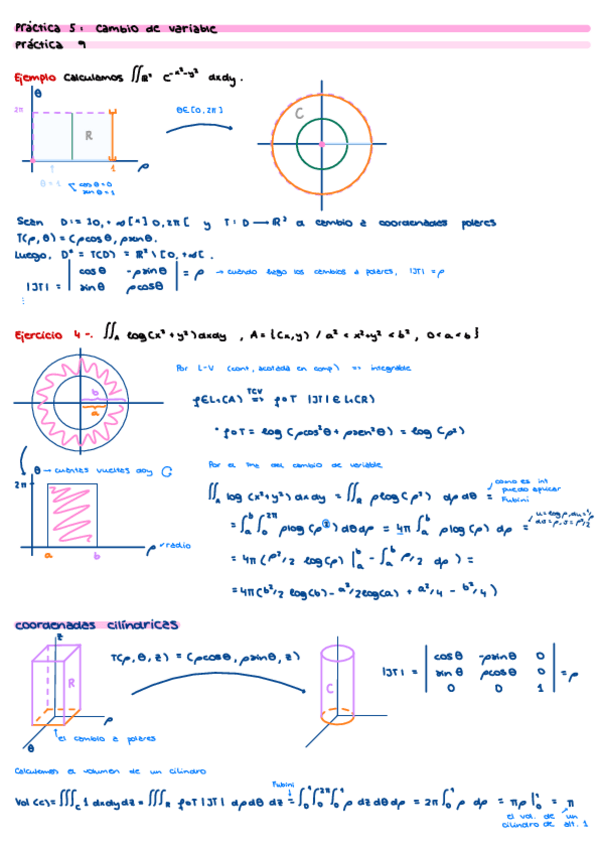 Práctica 5: Cambio de variable
Práctica 9
Ejemplo Calculamos ∬ℝ² e^-x²-y² dxdy.
θ
2π
θ∈[0,2π]
R
C
1
ρ
θ=1
cosθ=0
sinθ=1
Sean D:= ]0,+∞[×]0,2π[ y T:D→ℝ² a cambio a coordenadas polares
T(ρ,θ) = (ρcosθ, ρsinθ).
Luego, D* = T(D) = ℝ² \ [0,+∞[.
|JT| = | cosθ -ρsinθ | = ρ → cuando hago los cambios a polares, |JT|=ρ
| sinθ ρcosθ |
⋮
Ejercicio 4-. ∬A log(x²+y²)dxdy , A = {(x,y) / a² < x²+y² < b², 0<a<b}
Por L-V (cont, acotada en comp) => integrable
b
a
f∈L₁(A) TCV => f∘T |JT| ∈ L₁(R)
• f∘T = log(ρcos²θ + ρsen²θ) = log(ρ²)
θ → cuántas vueltas doy
2π
ρ → radio
a b
Por el tma del cambio de variable
∬A log(x²+y²)dxdy = ∬R ρlog(ρ²) dρdθ =
como es int puedo aplicar Fubini
= ∫a^b ∫0^2π ρlog(ρ²)dθdρ = 4π ∫a^b ρlog(ρ) dρ =
= 4π(ρ²/2 log(ρ) |a^b - ∫a^b ρ/2 dρ) =
= 4π(b²/2 log(b) - a²/2 log(a) + a²/4 - b²/4)
coordenadas cilíndricas
z
T(ρ,θ,z) = (ρcosθ, ρsinθ, z)
R
C
ρ
θ
el cambio a polares
|JT| = | cosθ -ρsinθ 0 |
| sinθ ρcosθ 0 | = ρ
| 0 0 1 |
Calculamos el volumen de un cilindro
Fubini
Vol(C) = ∭C 1 dxdydz = ∭R f∘T |JT| dρdθ dz = ∫0^1∫0^2π∫0^1 ρ dz dθ dρ = 2π∫0^1 ρ dρ = πρ|0^1 = π
el vol. de un cilindro de alt. 1